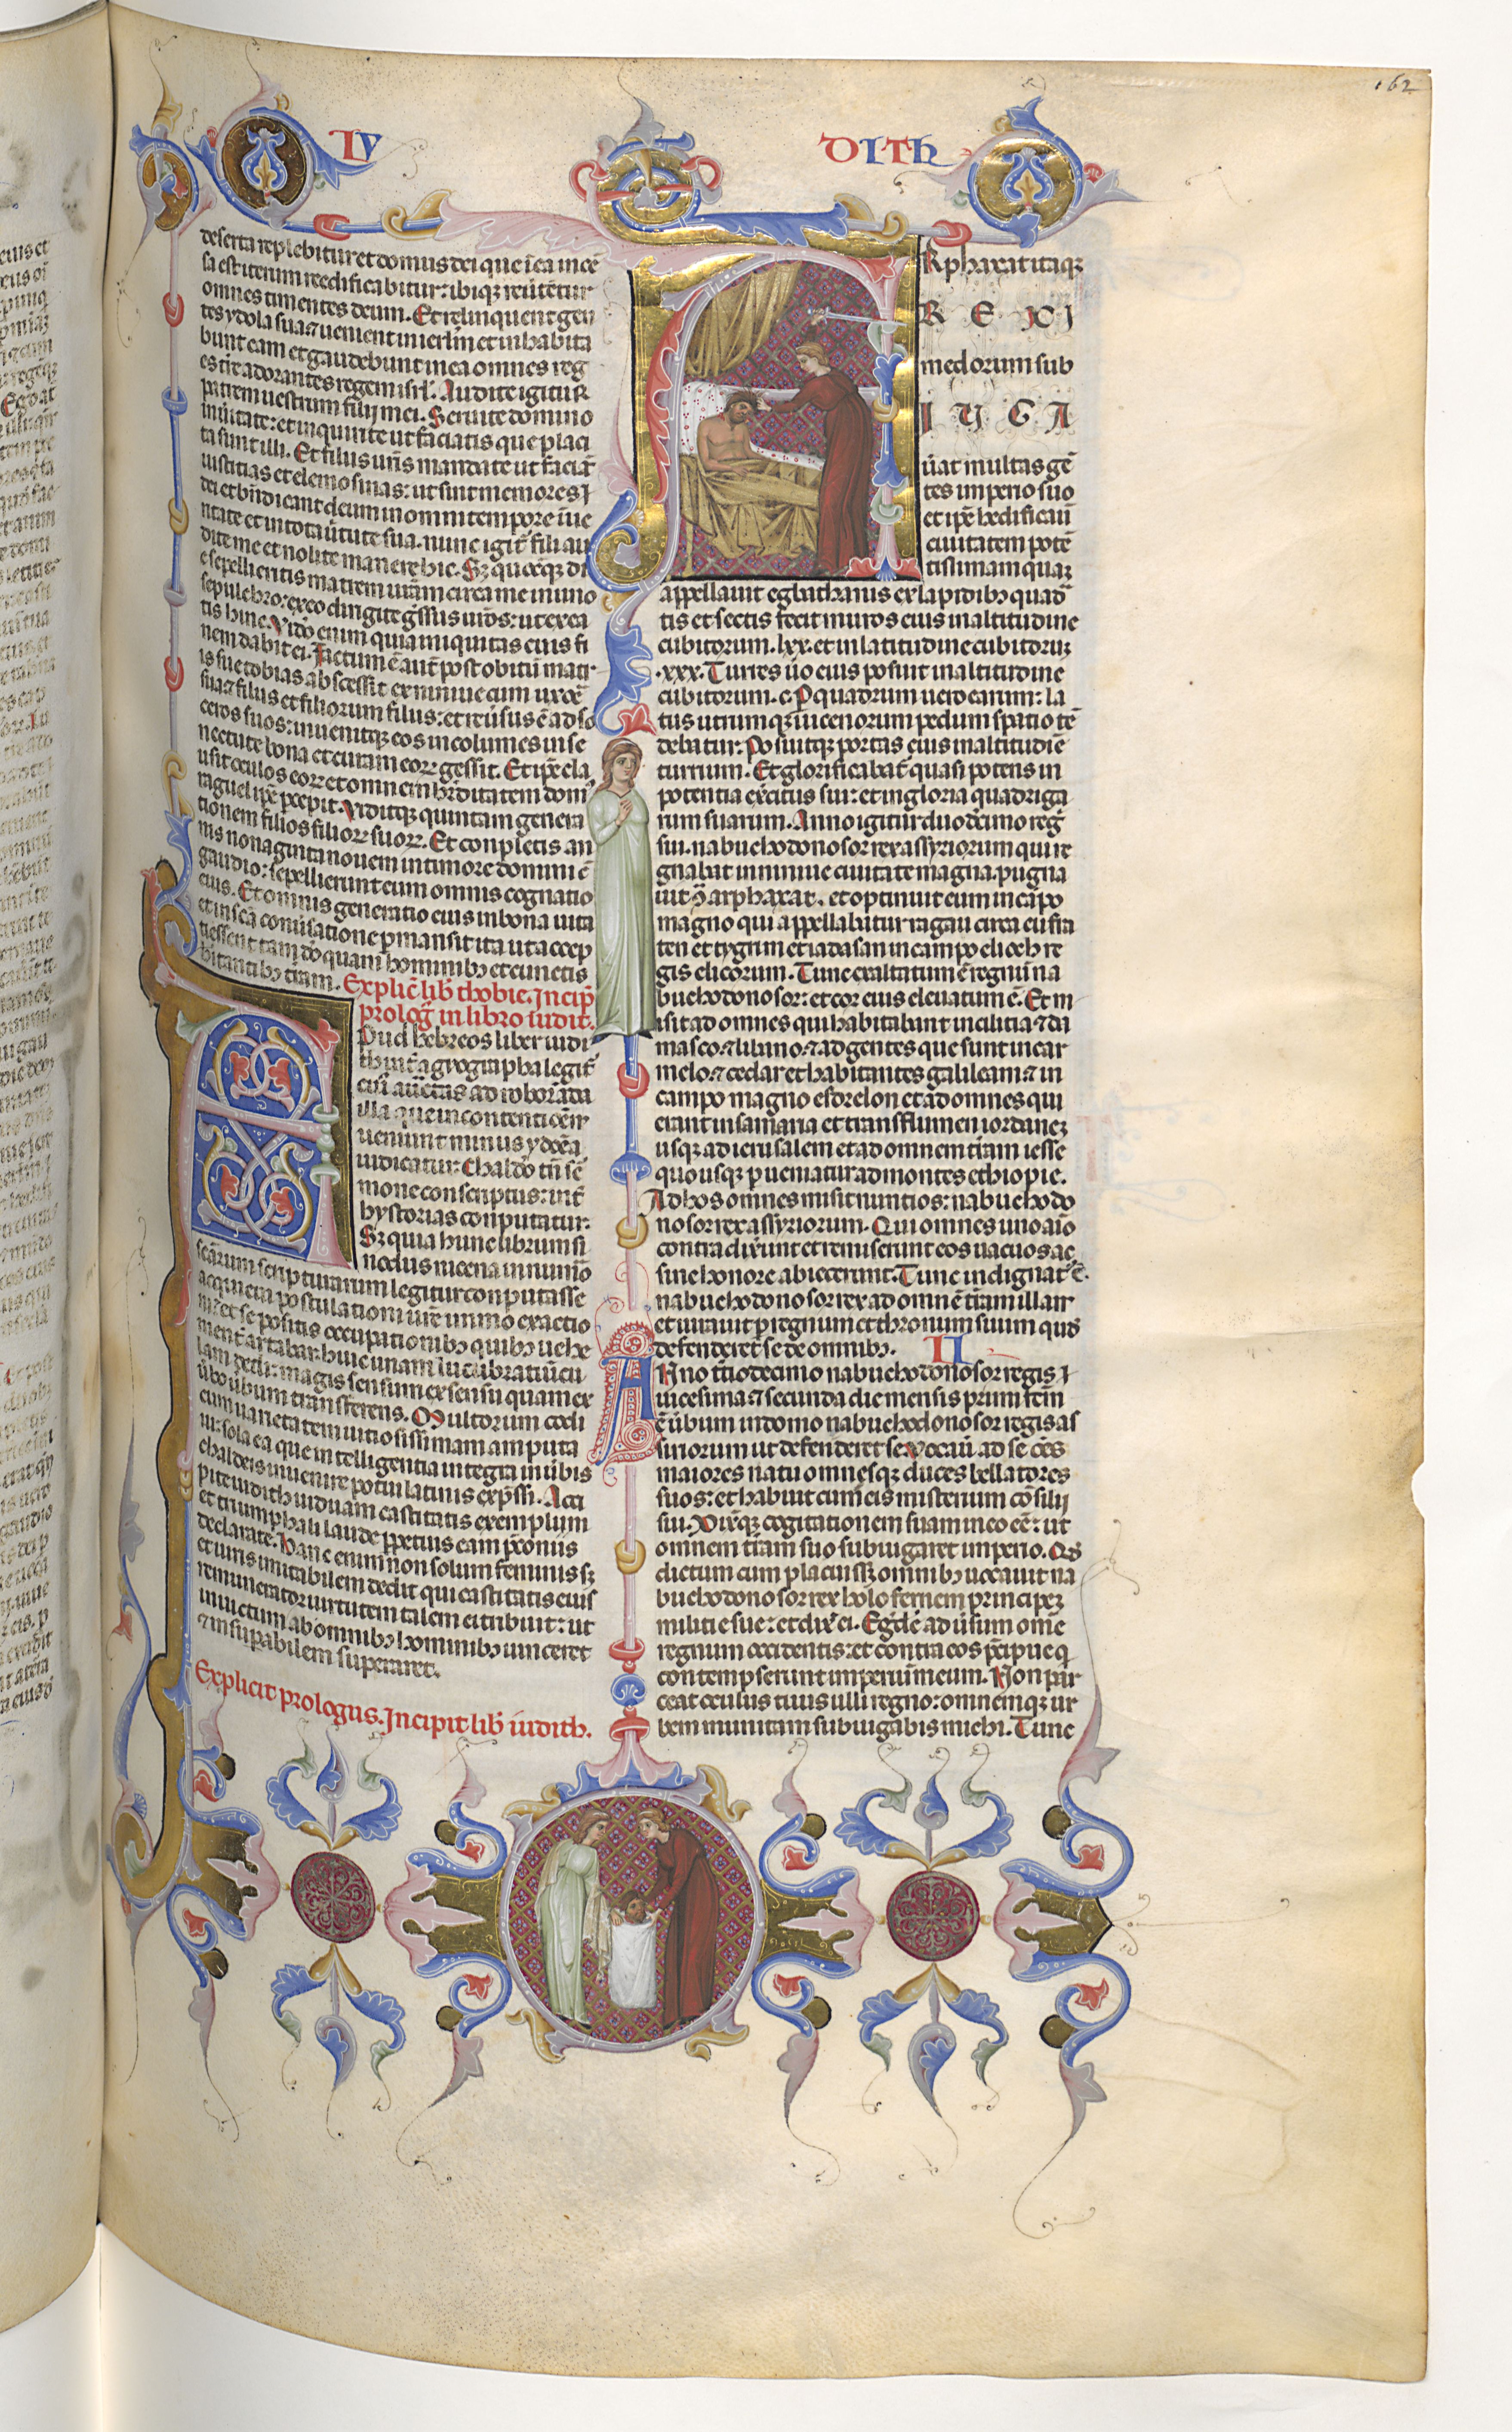 162
IV DITH
deserta replebitur et domus dei que ī ea incē
sa est iterum reedificabitur: ibiqꝫ reūtētur
omnes timentes deum. Et relinquent gen
tes ydola sua ⁊ uenient in ierlm̄ et inhabita
bunt eam et gaudebunt in ea omnes reg
es tr̄e adorantes regem isrl'. Audite igitur
patrem uestrum filij mei. Seruite domino
in ūitate: et inquirite ut faciatis que placi
ta sunt illi. Et filiis ur̄is mandate ut faciāt
iustitias et elemosinas: ut sint memores
dei et bn̄dicant deum in omni tempore ī ue
ritate et in tota ūtute sua. nunc igit̄ filii au
dite me et nolite manere hic. Sꝫ quacūqꝫ di
e sepellieritis matrem ur̄am circa me in uno
sepulchro: ex eo dirigite gr̄ssus ur̄os: ut exea
tis hinc. Video enim quia iniquitas eius fi
nem dabit ei. Factum ē aut̄ post obitū matr
is sue tobias abscessit ex niniue cum uxoē
sua ⁊ filiis et filiorum filiis: et reūsus ē ad so
ceros suos: inuenitqꝫ eos incolumes in se
nectute bona et curam eorꝝ gessit. Et ip̄e cla
usit oculos eorꝝ et omnem hr̄ditatem dom'
raguel ip̄e p̄cepit. Viditqꝫ quintam genera
tionem filios filiorꝝ suorꝝ. Et conpletis an
nis nonaginta nouem in timore domini c̄
gaudio: sepellierunt eum omnis cognatio
eius. Et omnis generatio eius in bona uita
et in sc̄a conūsatione pmansit ita ut accep
ti essent tam dō quam hominibꝫ et cunctis
hitantibꝫ tr̄am. Explic̄ lib̄ thobie. Incip̄
proloḡ in libro iudit.
Pud hebreos liber iudi
th int̄ agrographa legit̄
cui' auct̄as ad roborāda
illa que in contentiōēm
ueniunt minus ydōēa
iudicatur: Chaldō tn̄ sē
mone conscriptus: int̄
hystorias conputatur.
Sꝫ quia hunc librum si
nodus nicena in num̄o
sc̄arum scripturarum legitur conputasse
acquieui postulationi ur̄e immo exactio
ni: et sepositis occupationibꝫ quibꝫ uehe
ment̄ artabar: huic unam lucubratiūcu
lam dedi: magis sensum ex sensu quam ex
ūbo ūbum transferens. Multorum codi
cum uarietatem uitiosissimam amputa
ui: sola ea que intelligentia integra in ūbis
chaldeis inuenire potui latinis exp̄ssi. Acci
pite iudith uiduam castitatis exemplum
et triumphali laude ppetuis eam p̄coniis
declarate. Hanc enim non solum feminis sꝫ
et uiris imitabilem dedit qui castitatis eius
remunerator uirtutem talem ei tribuit: ut
inuictum ab omnibꝫ hominibꝫ uinceret
⁊ insupabilem superaret.
Explicit prologus. Incipit lib̄ iudith.
Rphaxat itaqꝫ
R E X
medorum sub
I U G A
ūat multas gē
tes imperio suo
et ip̄e hedificaū
ciuitatem potē
tissimam quaꝫ
appellauit egbathanis ex lapidibꝫ quad̄
tis et sectis fecit muros eius in altitudine
cubitorum .lxx. et in latitudine cubitoruꝫ
.xxx. Turres ūo eius posuit in altitudinē
cubitorum .c. P quadrum uero earum: la
tus utrumqꝫ uicenorum pedum spatio tē
debatur. Posuitqꝫ portas eius in altitudiē
turrium. Et glorificabat̄ quasi potens in
potentia ex̄citus sui: et in gloria quadriga
rum suarum. Anno igitur duodecimo reḡ
sui. nabuchodonosor rex assyriorum qui re
gnabat in niniue ciuitate magna. pugna
uit ꝯ arphaxat. et optinuit eum in cāpo
magno qui appellabitur ragau circa eufra
ten et tygrim et iadasan in campo elioch re
gis elicorum. Tunc exaltatum ē regnū na
buchodonosor: et cor eius eleuatum ē. Et m
isit ad omnes qui habitabant in cilitia ⁊ da
masco ⁊ libano. ⁊ ad gentes que sunt in car
melo ⁊ cedar et habitantes galileam ⁊ in
campo magno esdrelon et ad omnes qui
erant in samaria et trans flumen iordaneꝫ
usqꝫ ad ierusalem et ad omnem tr̄am iesse
quousqꝫ pueniatur ad montes ethiopie.
Ad hos omnes misit nuntios: nabuchodo
nosor rex assyriorum. Qui omnes uno aīo
contradix̄unt et remiserunt eos uacuos ac
sine honore abiecerunt. Tunc indignat' ē.
nabuchodonosor rex ad omnē tr̄am illam
et iurauit p regnum et thronum suum quod
defenderet se de omnibꝫ. II
Anno tr̄tiodecimo nabuchodonosor regis
uicesima ⁊ secunda die mensis primi fcm̄
ē ūbum in domo nabuchodonosor regis as
siriorum ut defenderet se. Vocaū ad se oēs
maiores natu omnesqꝫ duces bellatores
suos: et habuit cum eis misterium cōsilij
sui. Dix̄qꝫ cogitationem suam in eo eē: ut
omnem tr̄am suo subiugaret imperio. Qd
dictum cum placuissꝫ omnibꝫ uocauit na
buchodonosor rex holofernem principeꝫ
militie sue: et dix̄ ei. Egr̄de' aduersum om̄e
regnum occidentis: et contra eos p̄cipue q
contempserunt imperium meum. Non par
cet oculus tuus ulli regno: omnemqꝫ ur
bem munitam subiugabis michi. Tunc